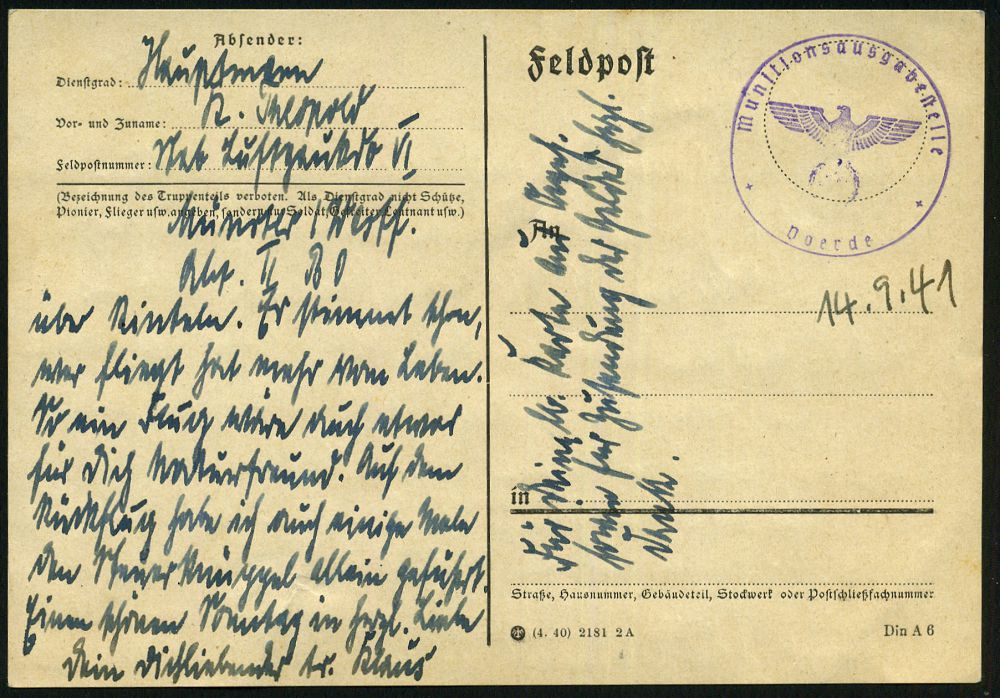 Absender:
Dienstgrad: Hauptmann
Vor- und Zuname: K.
Feldpostnummer: Neb. Luftgaukdo VI
(Bezeichnung des Truppenteils verboten. Als Dienstgrad nicht Schütze,
Pionier, Flieger usw. angeben, sondern nur Soldat, Gefreiter, Leutnant usw.)
Münster i/Westf.
Abt. II B O
über Rinteln. Es stimmt schon,
wer fliegt hat mehr vom Leben.
So ein Flug wäre auch etwas
für Dich Naturfreund. Auf dem
Rückflug habe ich auch einige Male
den Steuerknüppel allein geführt.
Einen schönen Sonntag in herzl. Liebe
Dein Dichliebender tr. Klaus
Feldpost
Munitionsausgabestelle
Voerde
14.9.41
An
Für Deine lb. Karte aus
sowie für Zusendung der
Dank.
in
Straße, Hausnummer, Gebäudeteil, Stockwerk oder Postschließfachnummer
(4. 40) 2181 2 A
Din A 6